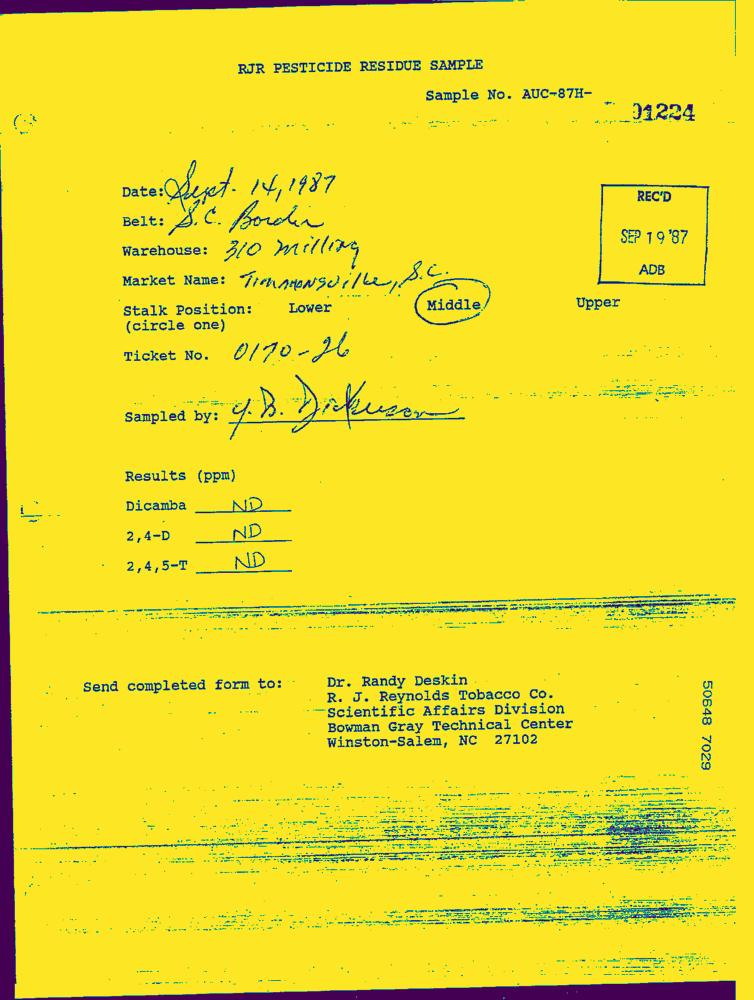 RJR PESTICIDE RESIDUE SAMPLE
Sample No. AUC-87H- 01224
Date: Sept. 14, 1987
Belt: S.C. Border
Warehouse: 310 Milling
Market Name: Timmonsville, S.C.
REC'D
SEP 19 '87
ADB
Stalk Position: Lower Middle Upper
(circle one)
Ticket No. 0170-26
Sampled by: J.B. Dickerson
Results (ppm)
Dicamba ND
2,4-D ND
2,4,5-T ND
Send completed form to: Dr. Randy Deskin
R. J. Reynolds Tobacco Co.
Scientific Affairs Division
Bowman Gray Technical Center
Winston-Salem, NC 27102
50648 7029